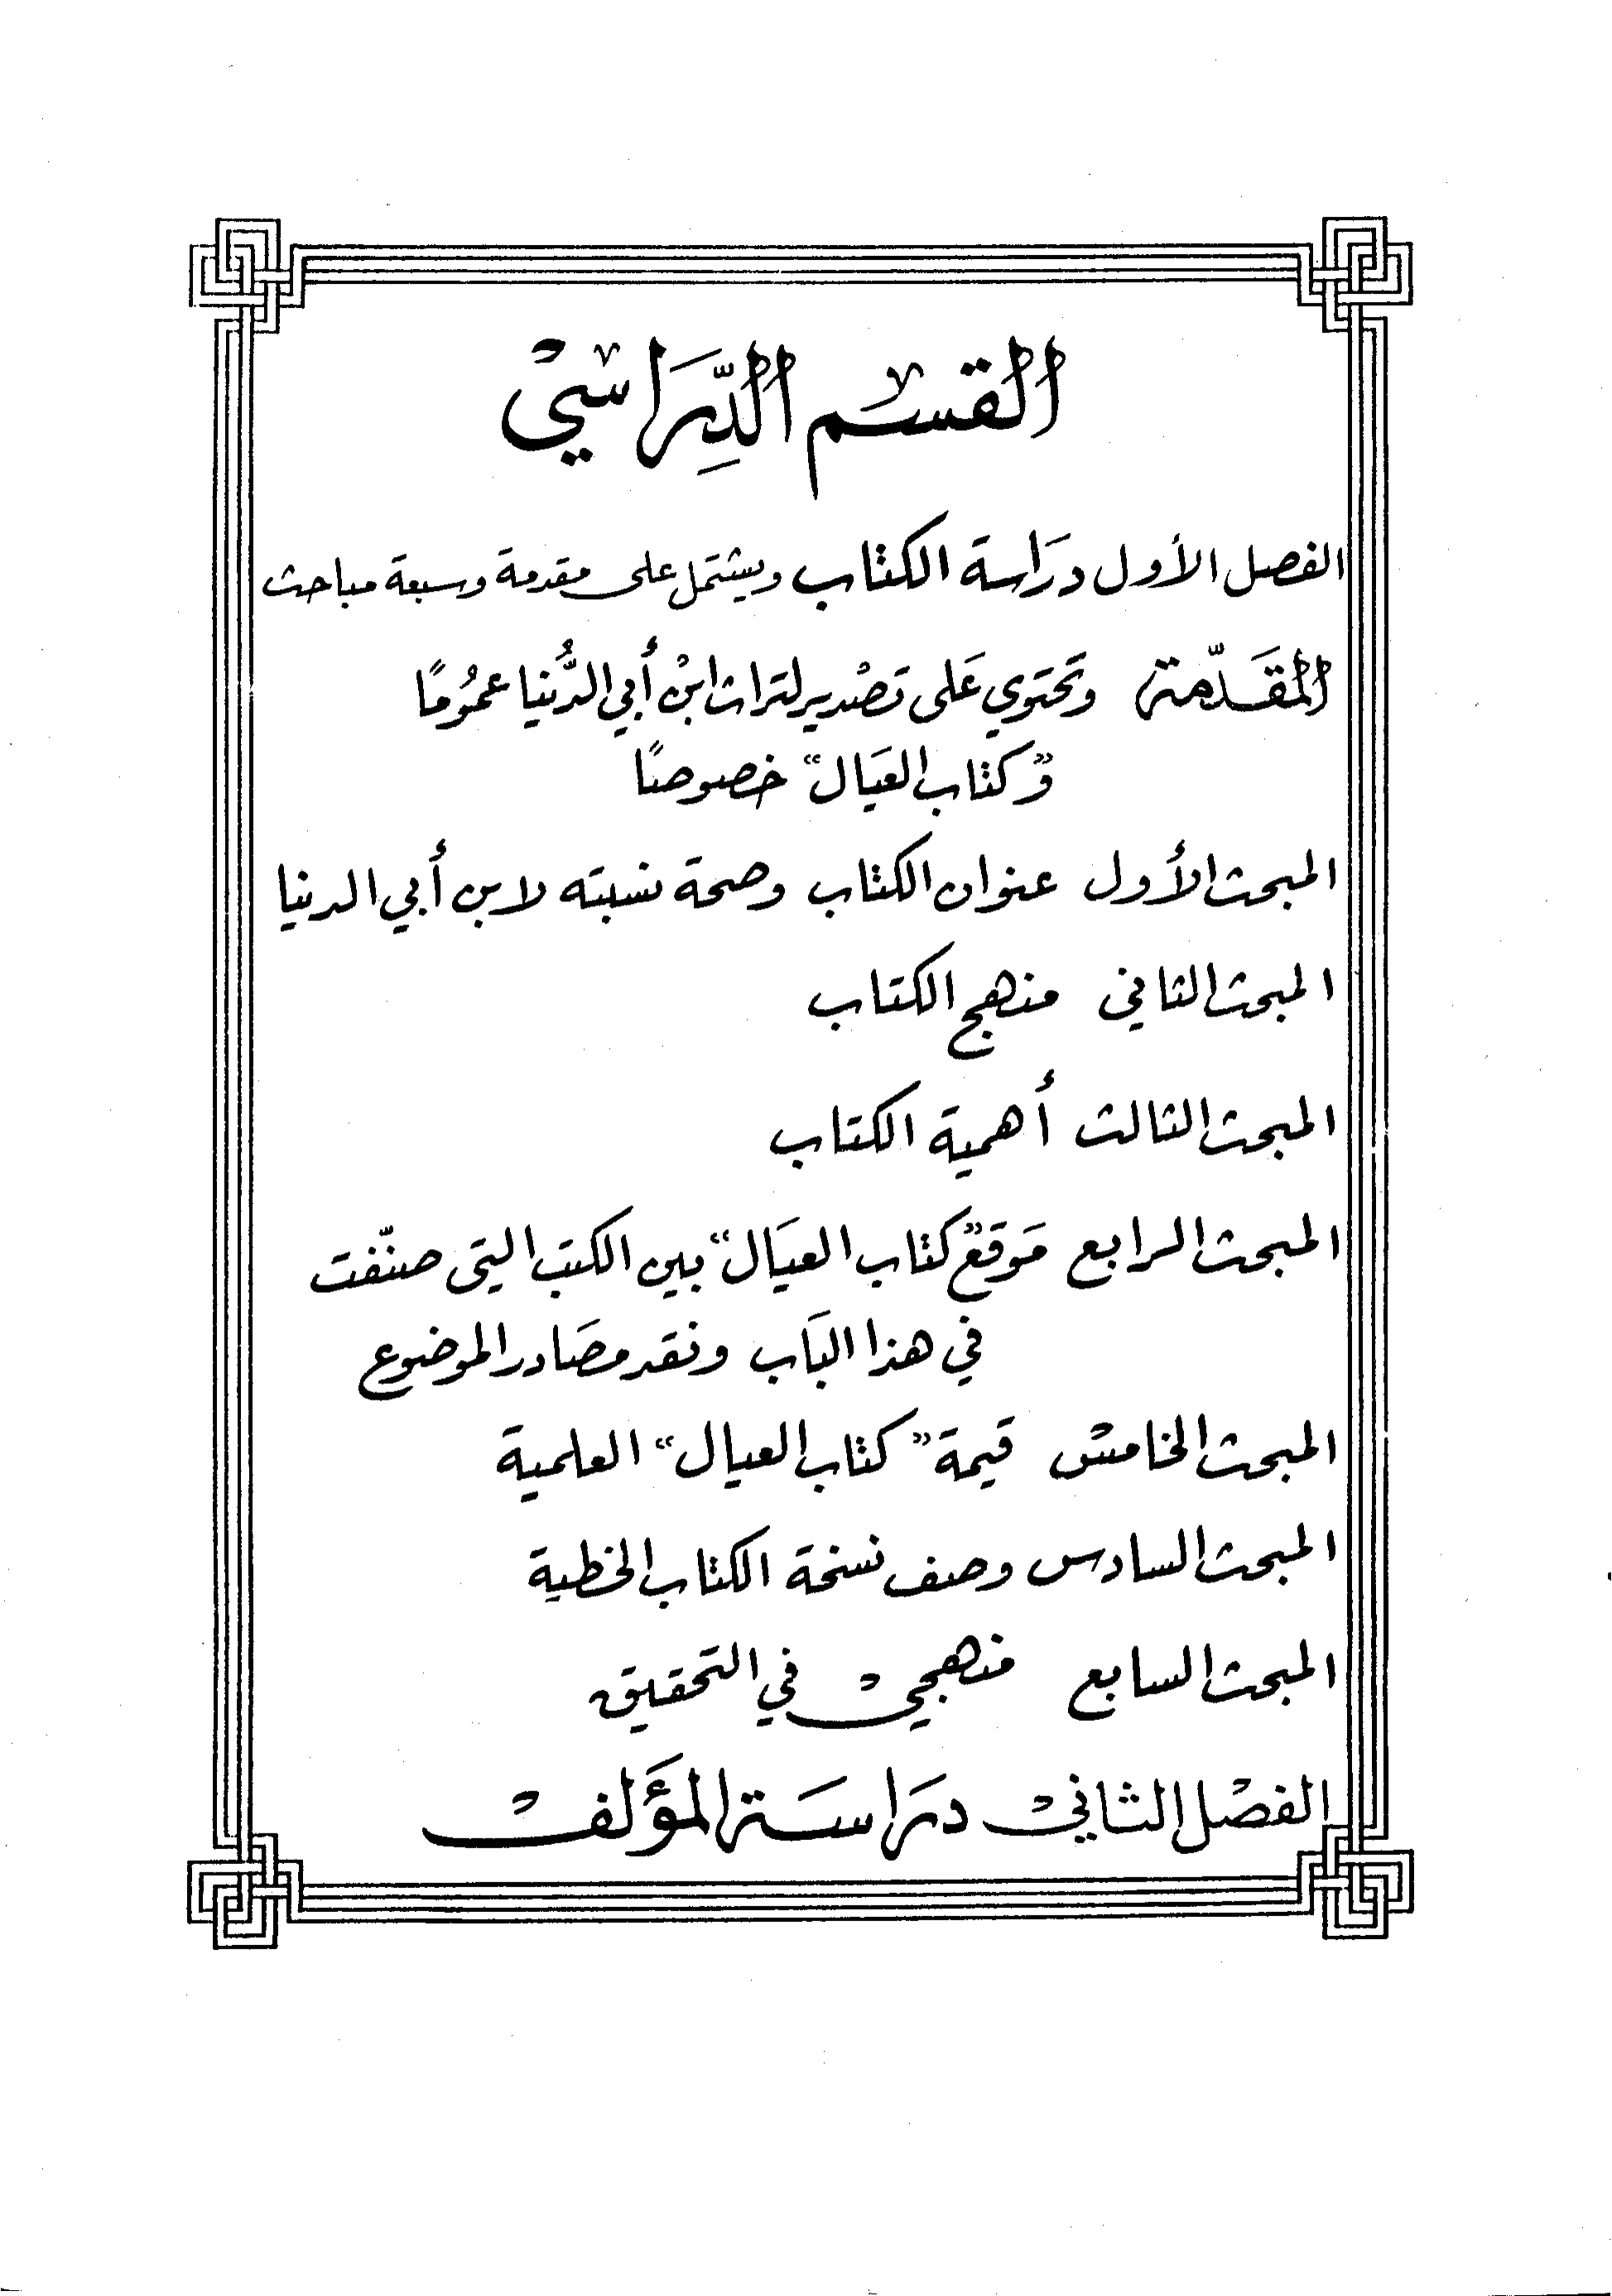 القسم الدِّرَاسي
الفصل الأول دَرَاسة الكتاب ويشتمل على مقدمة وسبعة مباحث
المقَدّمة وتحتوي عَلى تصْدير لتراث ابنْ أبي الدُّنيا عمُومًا
و"كتاب العيَال" خصوصًا
المبحث الأول عنوان الكتاب وصحة نسبته لابن أبي الدنيا
المبحث الثاني منهج الكتاب
المبحث الثالث أهمية الكتاب
المبحث الرابع مَوقع "كتاب العيَال" بين الكتب التي صنّفت
في هذا البَاب ونقد مصَادر الموضوع
المبحث الخامس قيمة "كتاب العيال" العلمية
المبحث السادس وصف نسخة الكتاب الخطية
المبحث السابع منهجي في التحقيق
الفصْل الثاني درَاسَة المؤَلف